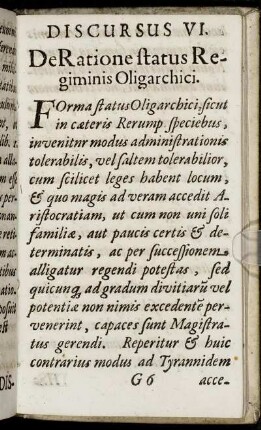 DISCURSUS VI.
De Ratione status Re-
giminis Oligarchici.
FOrma status Oligarchici, sicut
in cæteris Rerump. speciebus,
invenitur modus administrationis
tolerabilis, vel saltem tolerabilior,
cum scilicet leges habent locum,
& quo magis ad veram accedit A-
ristocratiam, ut cum non uni soli
familiæ, aut paucis certis & de-
terminatis, ac per successionem
alligatur regendi potestas, sed
quicunq, ad gradum divitiarū vel
potentiæ non nimis excedentē per-
venerint, capaces sunt Magistra-
tus gerendi. Reperitur & huic
contrarius modus ad Tyrannidem
G 6 acce-
DIS-